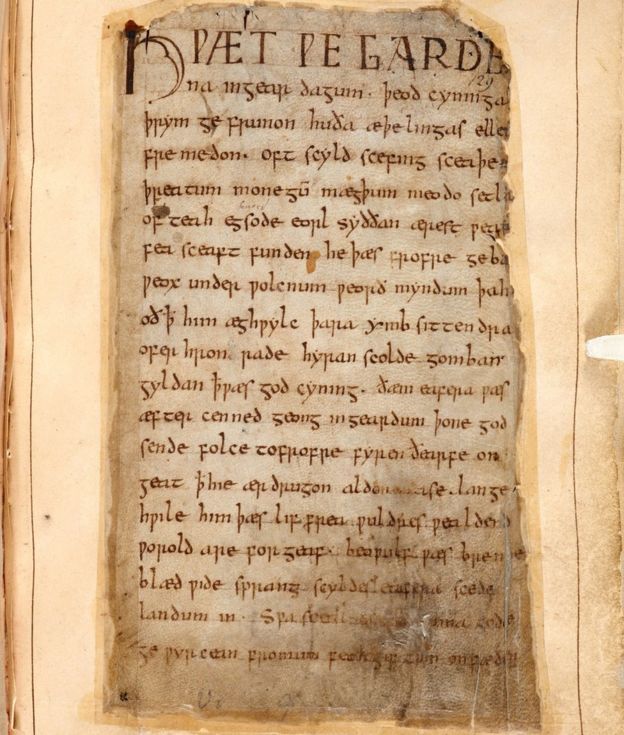 HǷÆT ǷE GARDE
na ingear dagum. þeod cyninga
þrym ge frunon huða æþelingas elle
fremedon. oft scyld scefing sceaþe
þreatum monegū mægþum meodo setla
of teah egsode eorl syððan ærest ƿear
fea sceaft funden he þæs frofre geba
ƿeox under ƿolcnum ƿeorð myndum þah
oð ꝥ him æghƿylc þara ymb sittendra
ofer hron rade hyran scolde gomban
gyldan ꝥ ƿæs god cyning. ðæm eafera ƿæs
æfter cenned geong in geardum þone god
sende folce tofrofre fyren ðearfe on
geat ꝥ hie ær drugon aldor ase. lange
hƿile him þæs lif frea ƿuldres ƿealdend
ƿorold are for geaf. beoƿulf ƿæs breme
blæd ƿide sprang scyldes eafera scede
landum in. Sƿa sceal guma gode
ge ƿyrcean fromum feoh giftum on fæder
29